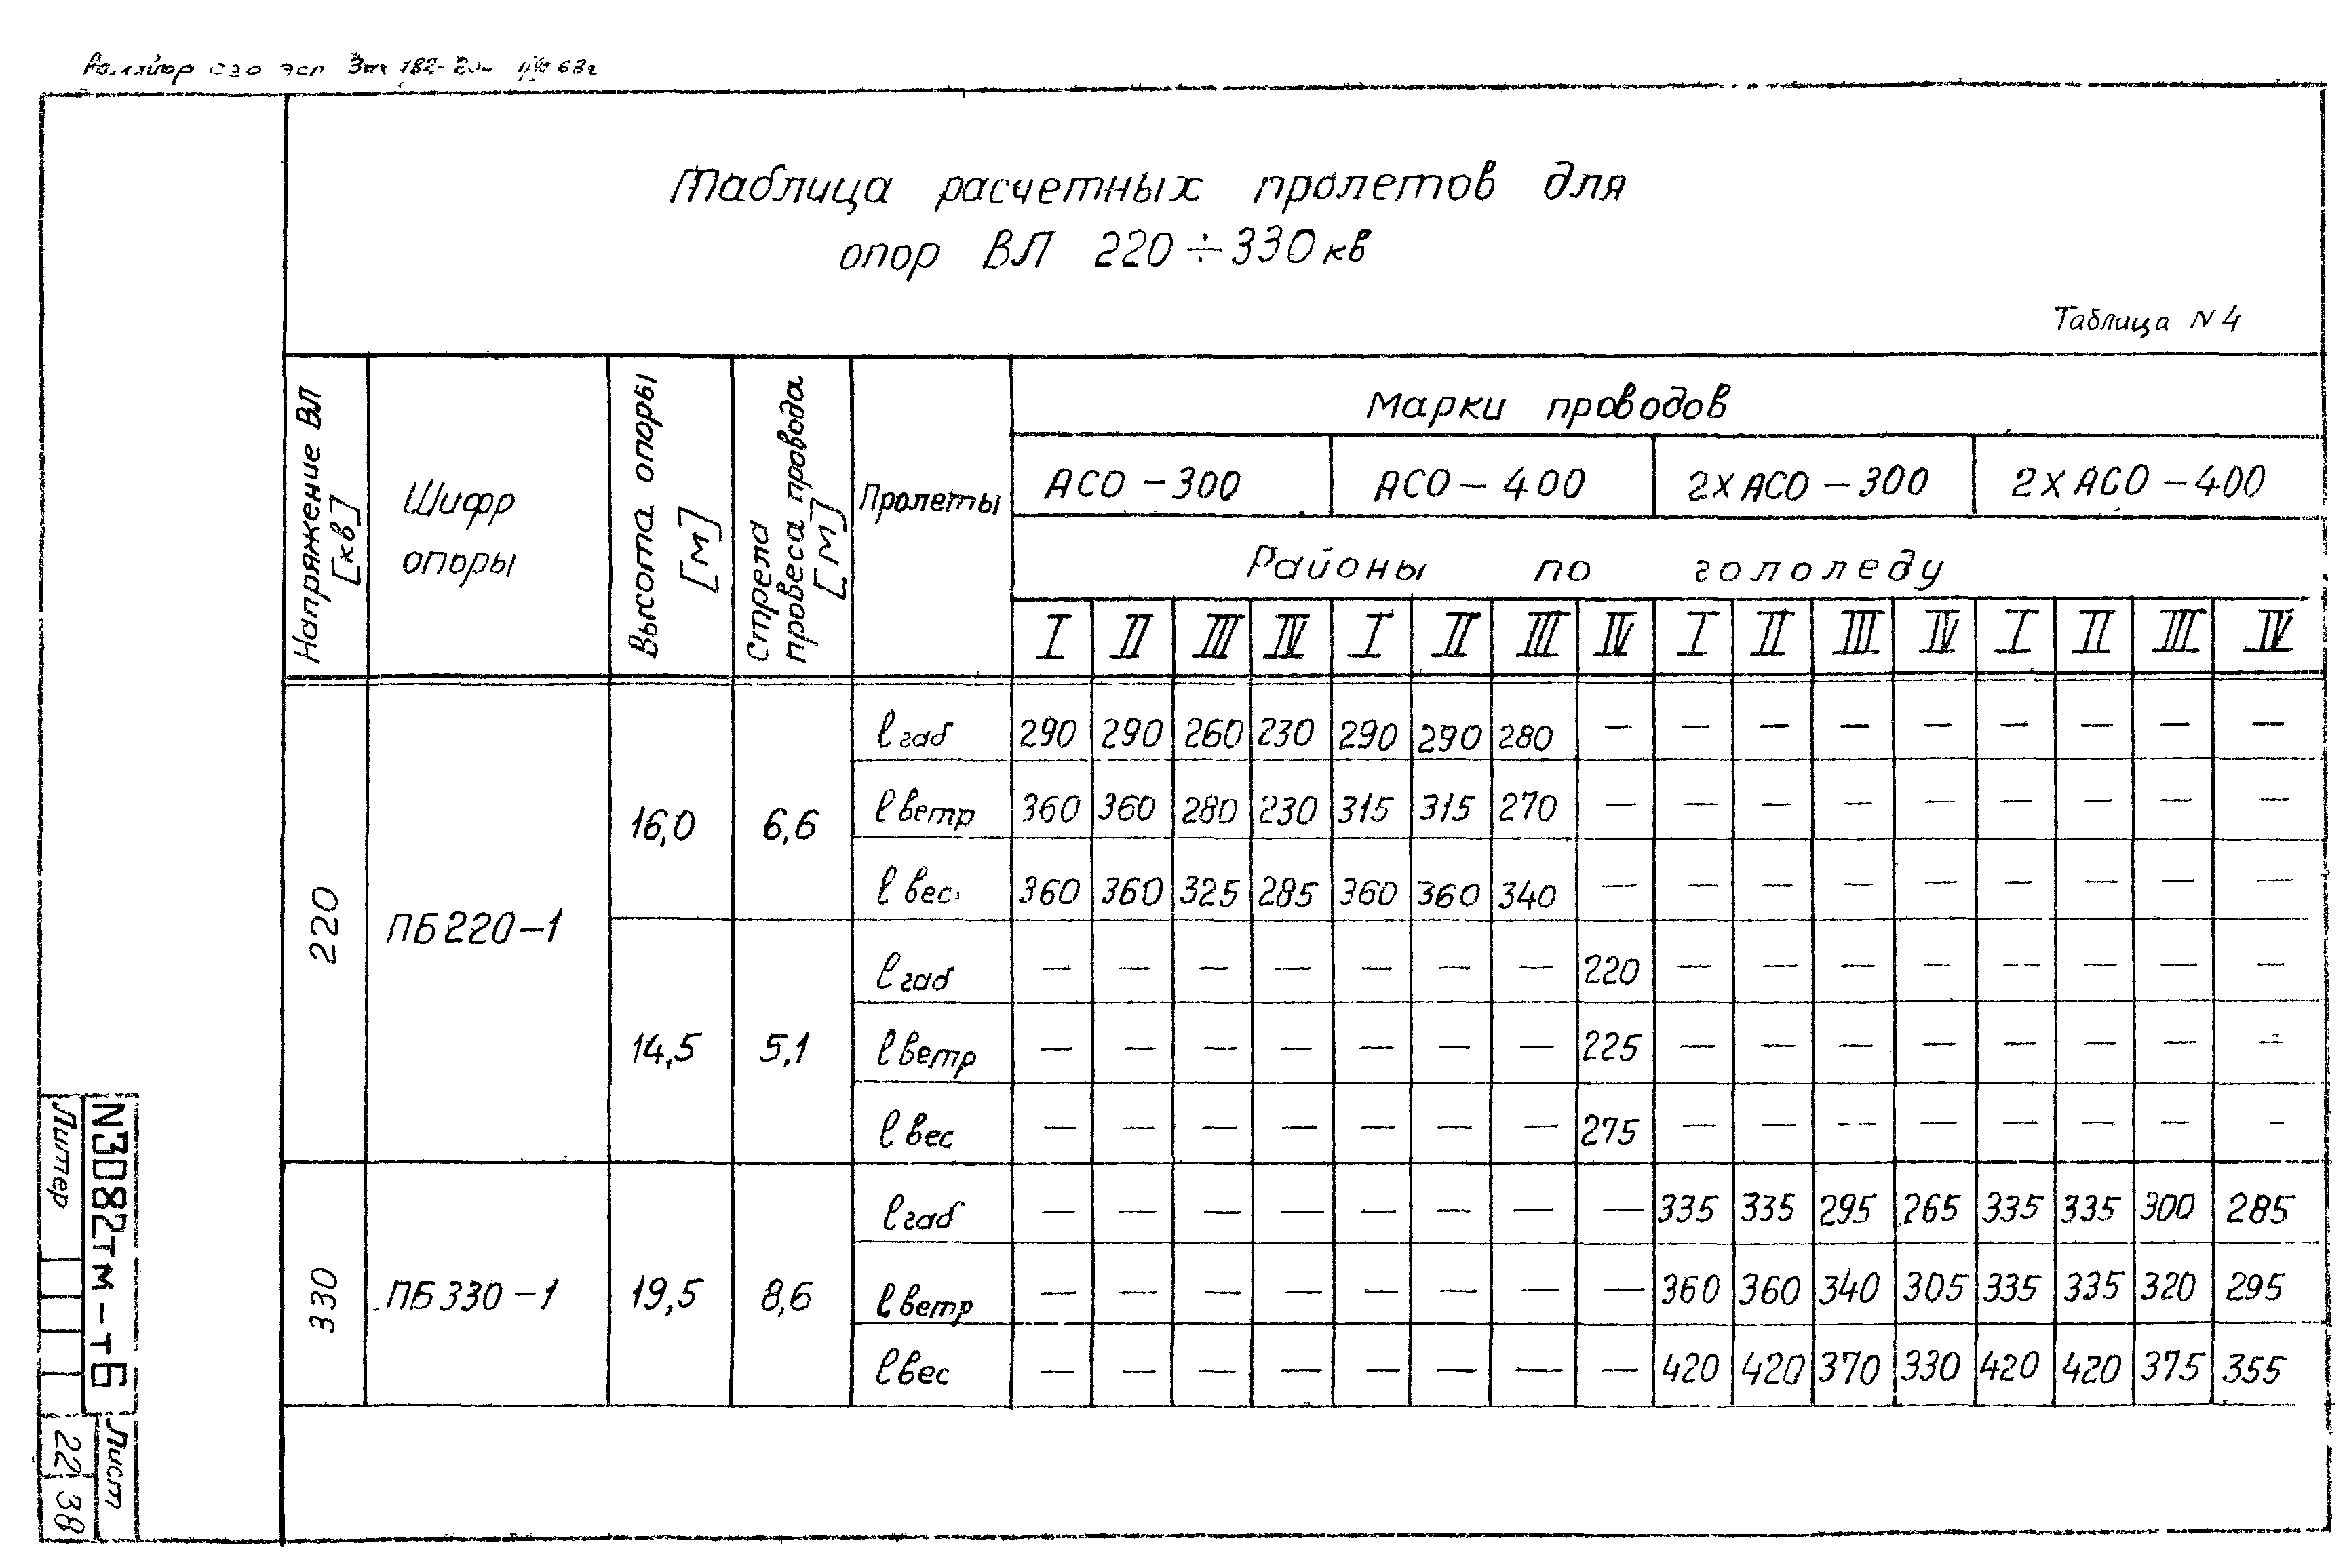 Зак 182-
Таблица расчетных пролетов для
опор ВЛ 220÷330 кв
Таблица N 4
Напряжение ВЛ [кв]
Шифр опоры
Высота опоры [м]
Стрела провеса провода [м]
Пролеты
Марки проводов
АСО-300 АСО-400 2хАСО-300 2хАСО-400
Районы по гололеду
I II III IV I II III IV I II III IV I II III IV
220 ПБ220-1
16,0 6,6
ℓ габ 290 290 260 230 290 290 280 — — — — — — — — —
ℓ ветр 360 360 280 230 315 315 270 — — — — — — — — —
ℓ вес 360 360 325 285 360 360 340 — — — — — — — — —
14,5 5,1
ℓ габ — — — — — — — 220 — — — — — — — —
ℓ ветр — — — — — — — 225 — — — — — — — —
ℓ вес — — — — — — — 275 — — — — — — — —
330 ПБ330-1
19,5 8,6
ℓ габ — — — — — — — — 335 335 295 265 335 335 300 285
ℓ ветр — — — — — — — — 360 360 340 305 335 335 320 295
ℓ вес — — — — — — — — 420 420 370 330 420 420 375 355
N3082тм-тБ
Литер
Лист
22 38